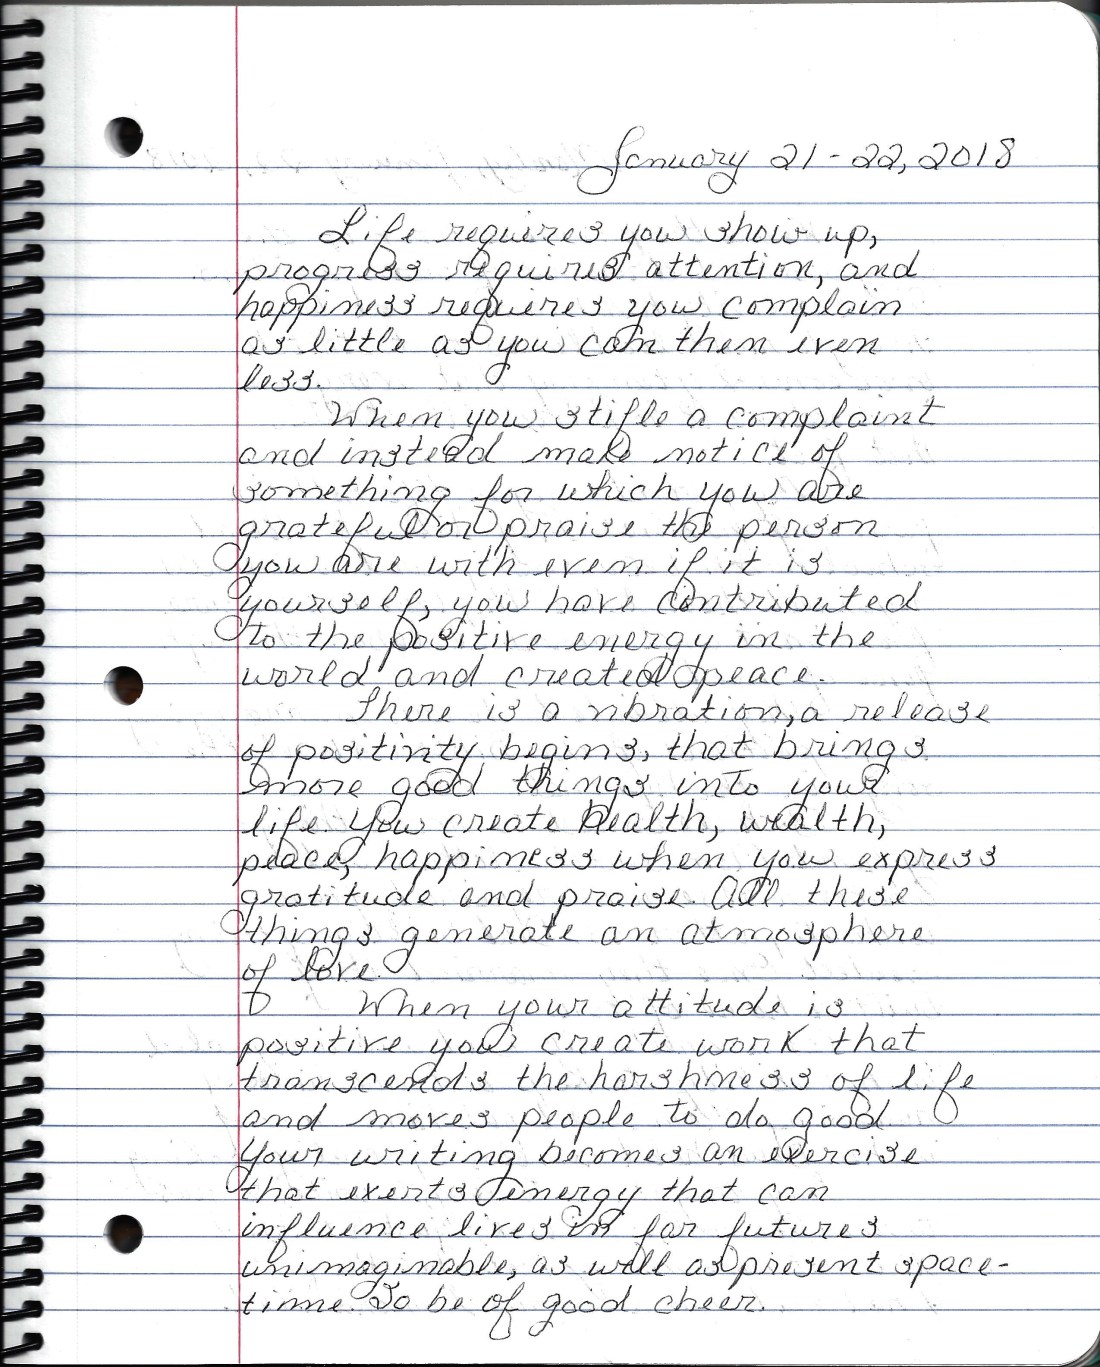 January 21-22, 2018
Life requires you show up,
progress requires attention, and
happiness requires you complain
as little as you can then even
less.
When you stifle a complaint
and instead make notice of
something for which you are
grateful or praise the person
you are with even if it is
yourself, you have contributed
to the positive energy in the
world and created peace.
There is a vibration, a release
of positivity begins, that brings
more good things into your
life. You create health, wealth,
peace, happiness when you express
gratitude and praise. All these
things generate an atmosphere
of love.
When your attitude is
positive you create work that
transcends the harshness of life
and moves people to do good.
Your writing becomes an exercise
that exerts energy that can
influence lives in far futures
unimaginable, as well as present space-
time. So be of good cheer.